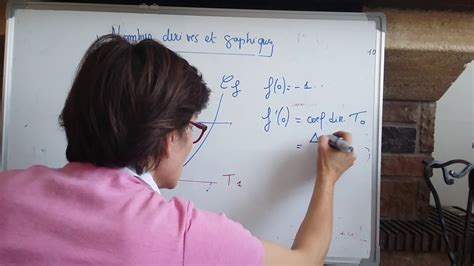 Nombres dérivés et graphiques
C_f
f(0) = -1
f'(0) = coef dir. T₀
= Δ
T₁